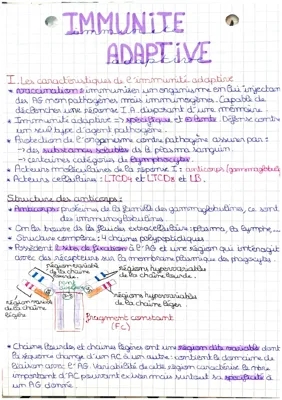 IMMUNITE
ADAPTIVE
I. Les caractéristiques de l'immunité adaptive
* vaccination : immuniser un organisme en lui injectant
des AG non pathogènes mais immunogènes. Capable de
déclencher une réponse I.A. disposant d'une mémoire.
* Immunité adaptive => spécifique et retante. Défense contre
un seul type d'agent pathogène.
* Protection de l'organisme contre pathogène assurer par :
-> des substances solubles du plasma sanguin
-> certaines catégories de lymphocytes.
* Acteurs moléculaires de la réponse I : anticorps (gammaglobu
* Acteurs cellulaire : LTCD4 et LTCD8 et LB.
Structure des anticorps :
* Anticorps : protéine de la famille des gammaglobulines, ce sont
des immunoglobulines.
* On les trouve ds les fluides extracellulaire : plasma, la lymphe,...
* Structure complexe : 4 chaînes polypeptidiques
* Possèdent 2 sites de fixation à l'AG et une région qui interagit
avec des récepteurs sur la membrane plasmique des phagocytes.
région variable
de la chaîne
lourde.
régions hypervariables
de la chaîne lourde.
pont
région variable
de la chaîne
légère
régions hypervariables
de la chaîne légère
Fragment constant
(Fc)
* Chaînes lourdes et chaînes légères ont une région dite variable dont
la séquence change d'un AC à un autre : contient le domaine de
liaison avec l'AG. Variabilité de cette région caractérise le nbre
important d'AC pouvant exister mais surtout sa spécificité à
un AG donné.